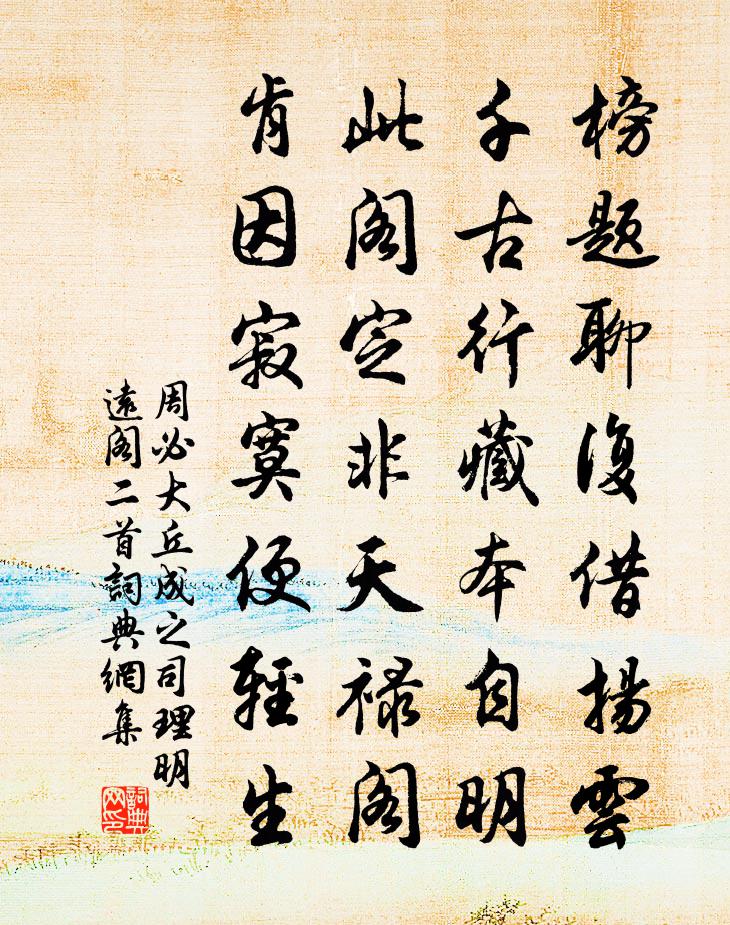 榜題聊復借揚雲
千古行藏本自明
此閣定非天禄閣
肯因寂寞便輕生
周必大丘成之司理明
遠閣二首詞典網集
詞典
网印